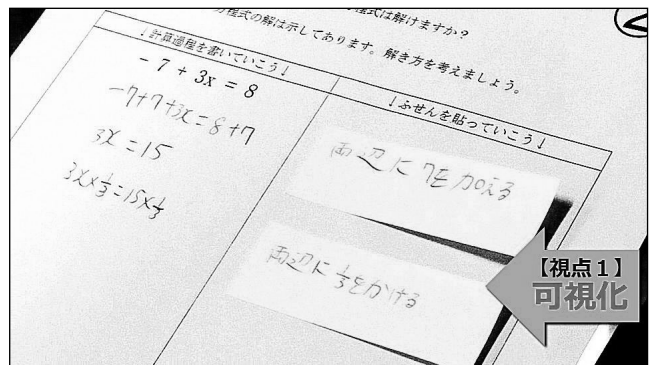 方程式の解は示してあります。解き方を考えましょう。
程式は解けますか？
②
↓計算過程を書いていこう↓
-7+3x=8
-7+7+3x=8+7
3x=15
3x×⅓=15×⅓
↓ふせんを貼っていこう↓
両辺に7を加える
両辺に⅓をかける
【視点1】
可視化